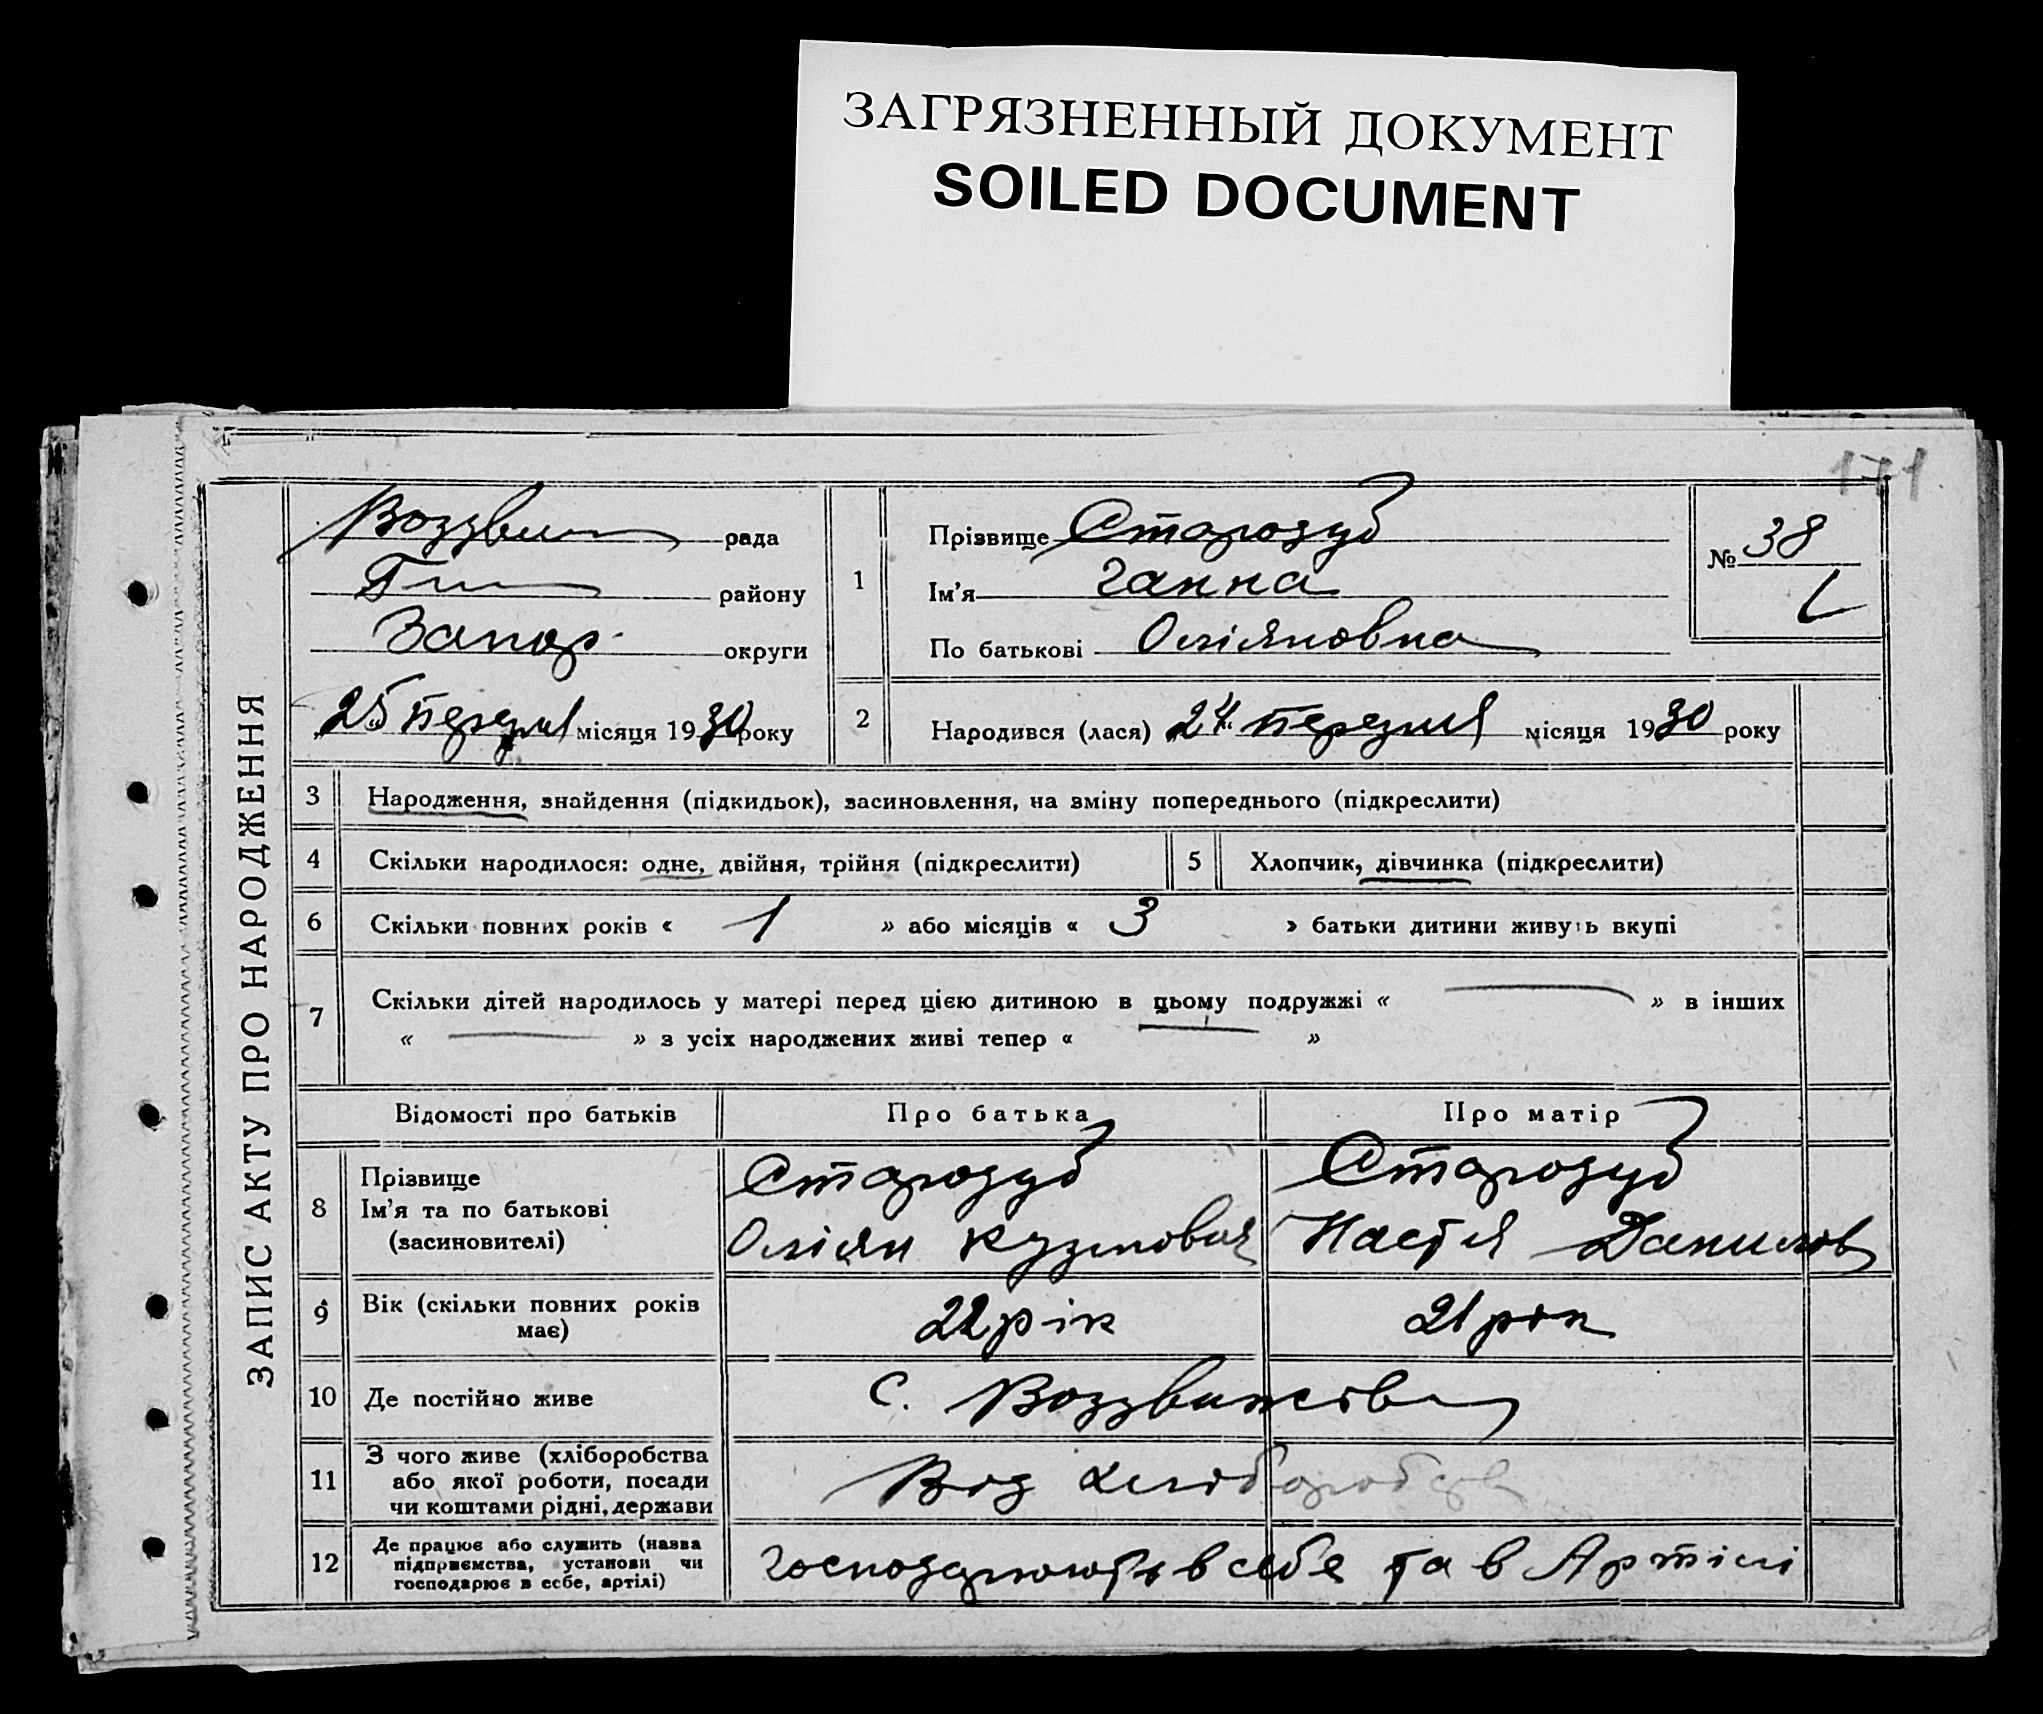 ЗАГРЯЗНЕННЫЙ ДОКУМЕНТ
SOILED DOCUMENT
171
ЗАПИС АКТУ ПРО НАРОДЖЕННЯ
Воздви рада
району
Запор. округи
25 місяця 1930 року
1
Прізвище Старозуб
Ім'я Ганна
По батькові Оліяновна
№ 38
2
Народився (лася) 24 місяця 1930 року
3 Народження, знайдення (підкидьок), засиновлення, на зміну попереднього (підкреслити)
4 Скільки народилося: одне, двійня, трійня (підкреслити)
5 Хлопчик, дівчинка (підкреслити)
6 Скільки повних років « 1 » або місяців « 3 » батьки дитини живуть вкупі
7 Скільки дітей народилось у матері перед цією дитиною в цьому подружжі « — » в інших
« — » з усіх народжених живі тепер « — »
Відомості про батьків Про батька Про матір
8 Прізвище
Ім'я та по батькові
(засиновителі)
Старозуб
Оліян Кузмович
Старозуб
Настя Данилов
9 Вік (скільки повних років
має)
22 рік 21 рік
10 Де постійно живе с. Воздвижівка
11 З чого живе (хліборобства
або якої роботи, посади
чи коштами рідні, держави
Від хліборобства
12 Де працює або служить (назва
підприємства, установи чи
господарює в себе, артілі)
господарюють в себе та в Артілі